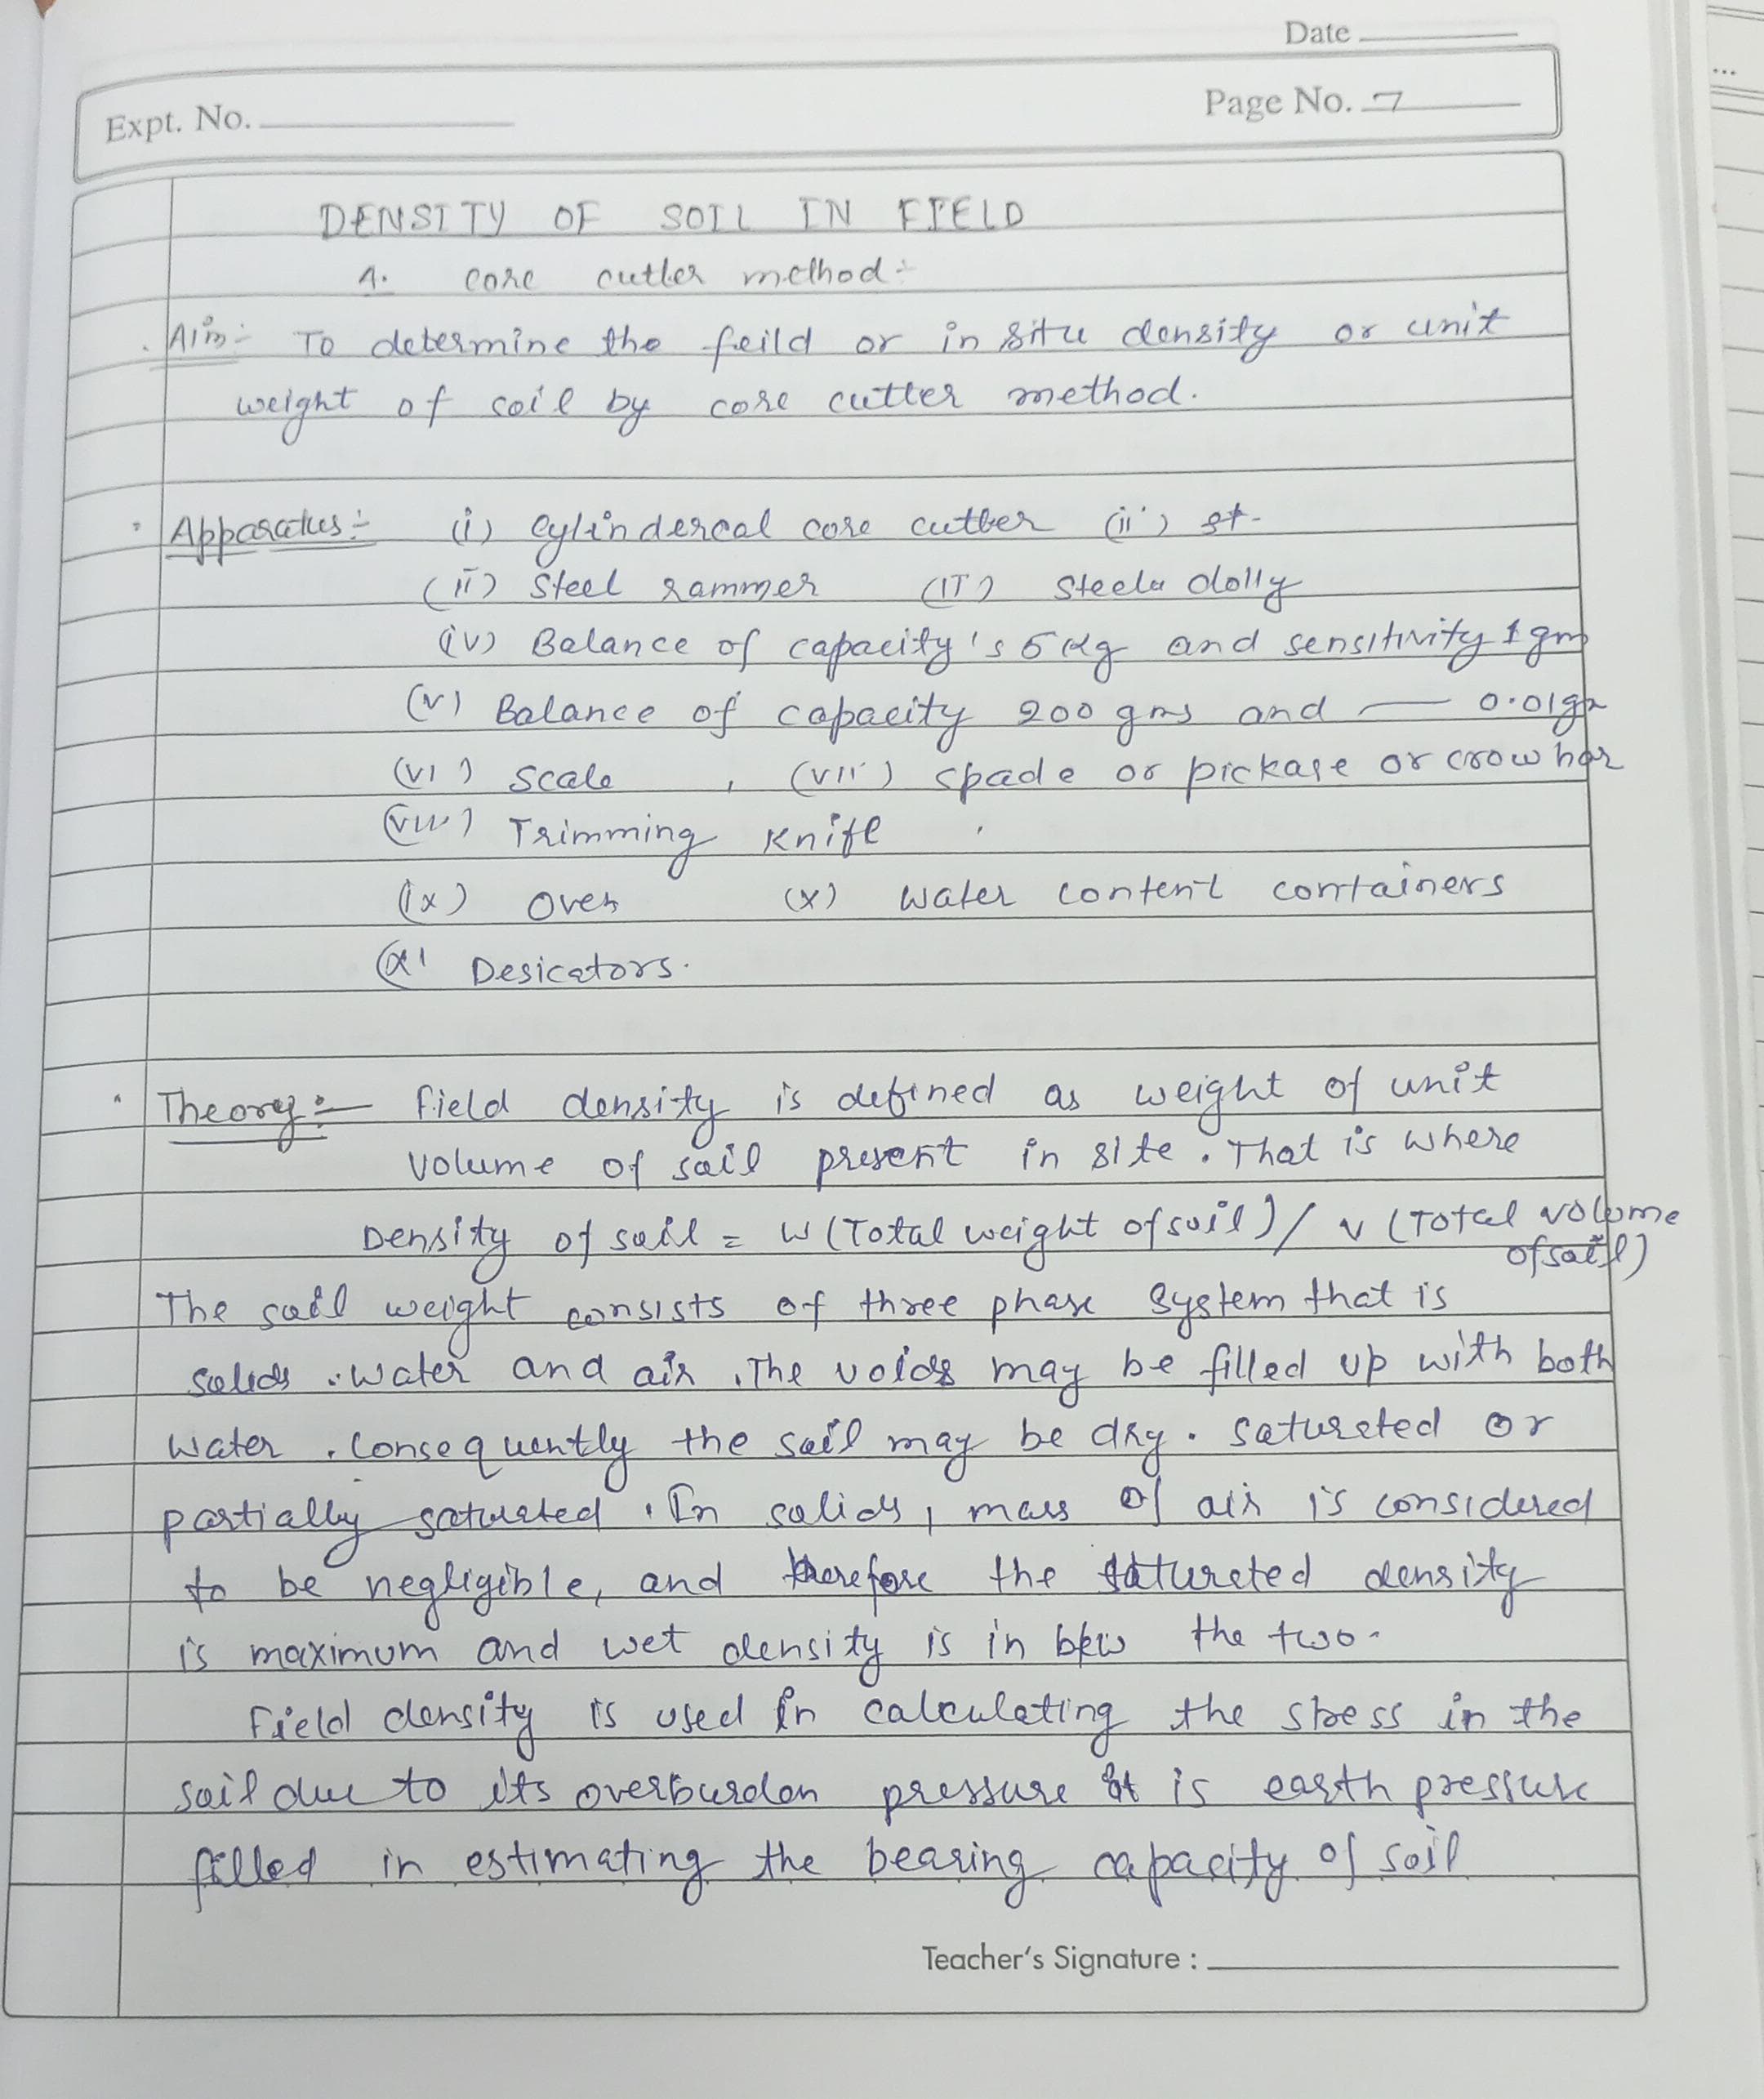 Date
Expt. No.
Page No. 7
DENSITY OF SOIL IN FIELD
A. core cutter method:-
Aim:- To determine the feild or in situ density or unit
weight of soil by core cutter method.
Apparatus:- (i) Cylindercal core cutter (ii) st-
(ii) Steel rammer (iii) Steele dolly
(iv) Balance of capacity's 5 kg and sensitivity 1 gm
(v) Balance of capacity 200 gms and — 0.01gm
(vi) Scale , (vii) spade or pickaxe or crow bar
(viii) Trimming Knife
(ix) Oven (x) water content containers
(xi Desicators.
Theory:- Field density is defined as weight of unit
volume of soil present in site. That is where
Density of soil = W (Total weight of soil) / v (Total volume
of soil)
The soil weight consists of three phase system that is
solids . water and air . The voids may be filled up with both
water . Consequently the soil may be dry . saturated or
partially saturated . In solids, mass of air is considered
to be negligible, and therefore the saturated density
is maximum and wet density is in btw the two.
Field density is used in calculating the stress in the
soil due to its overburden pressure it is earth pressure
filled in estimating the bearing capacity of soil
Teacher's Signature :